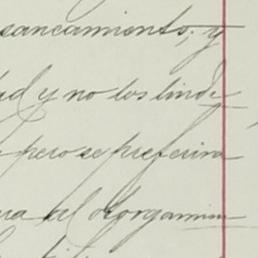 sancamiento; y
ad y no los linde
pero se preferira
ra al otorgamien